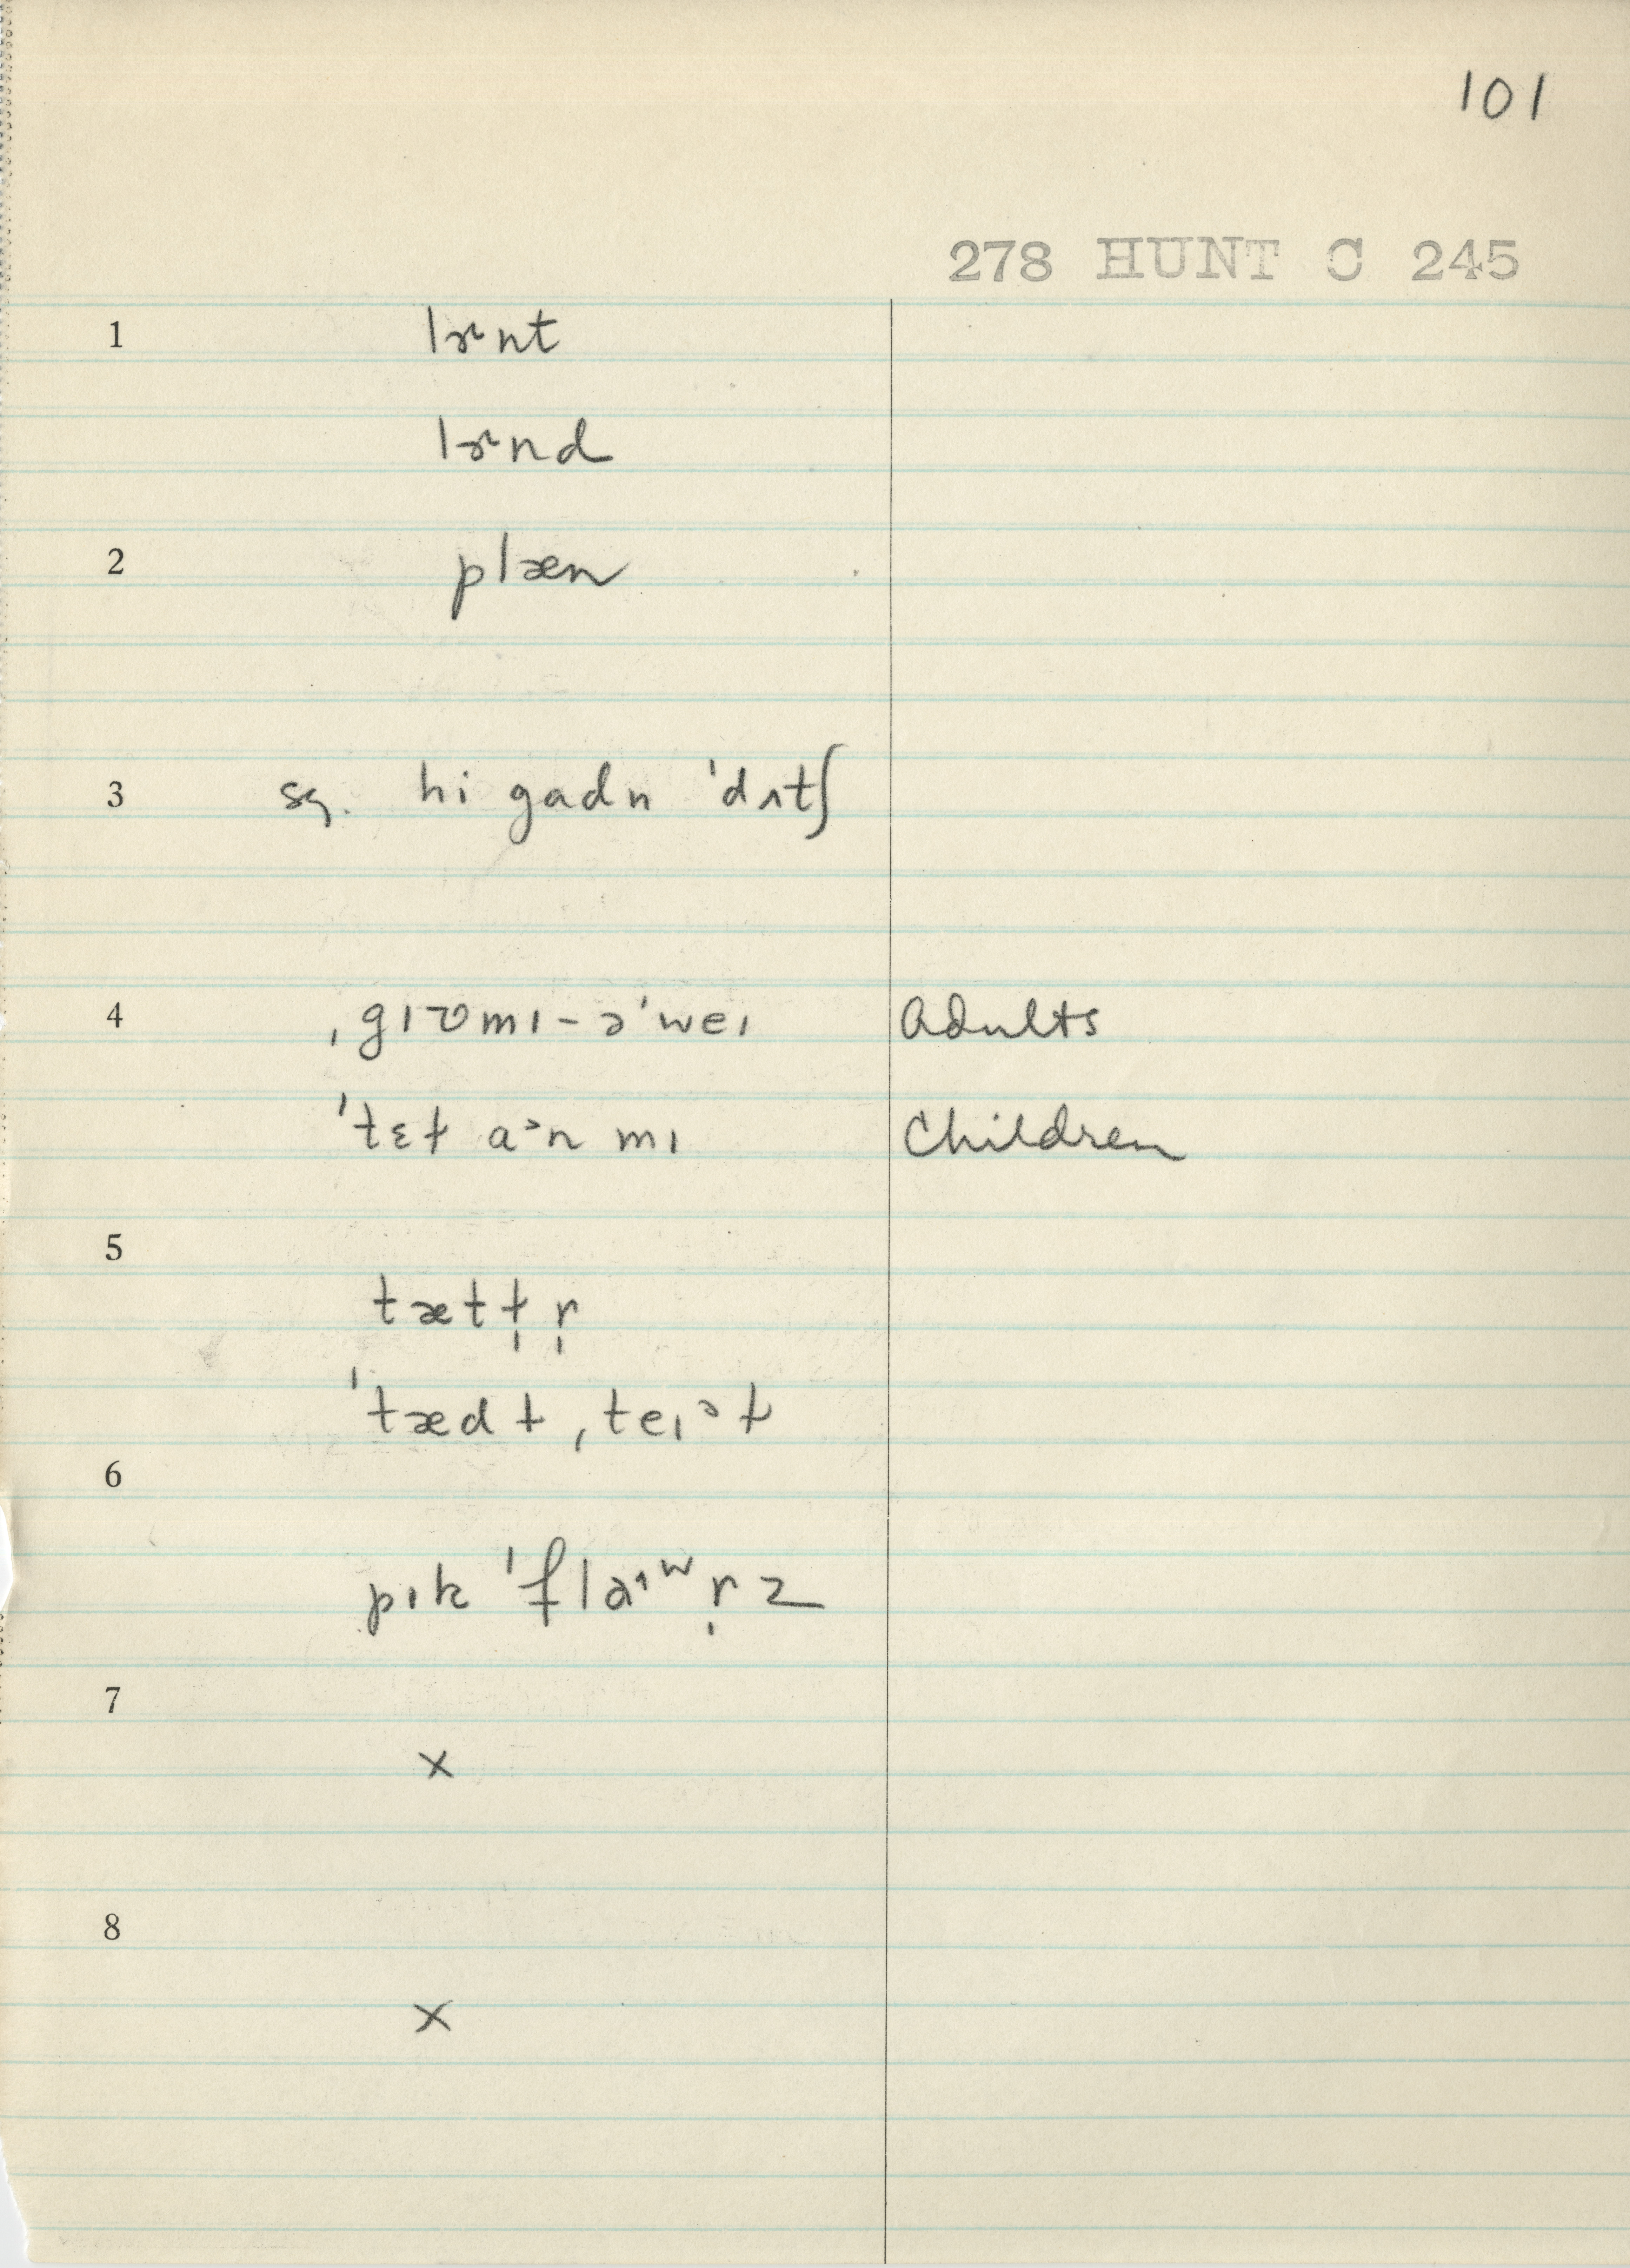 101
278 HUNT C 245
1 lɚnt
lɚnd
2 plæn
3 sg. hi gadn ˈdʌtʃ
4 ˌgɪvmɪ-əˈweɪ Adults
ˈtɛɫ aᵊn mɪ Children
5
tætɫ̩r̩
ˈtædɫ ˌteɪᵊɫ
6
pɪk ˈflaᶺʷr̩z
7
x
8
x